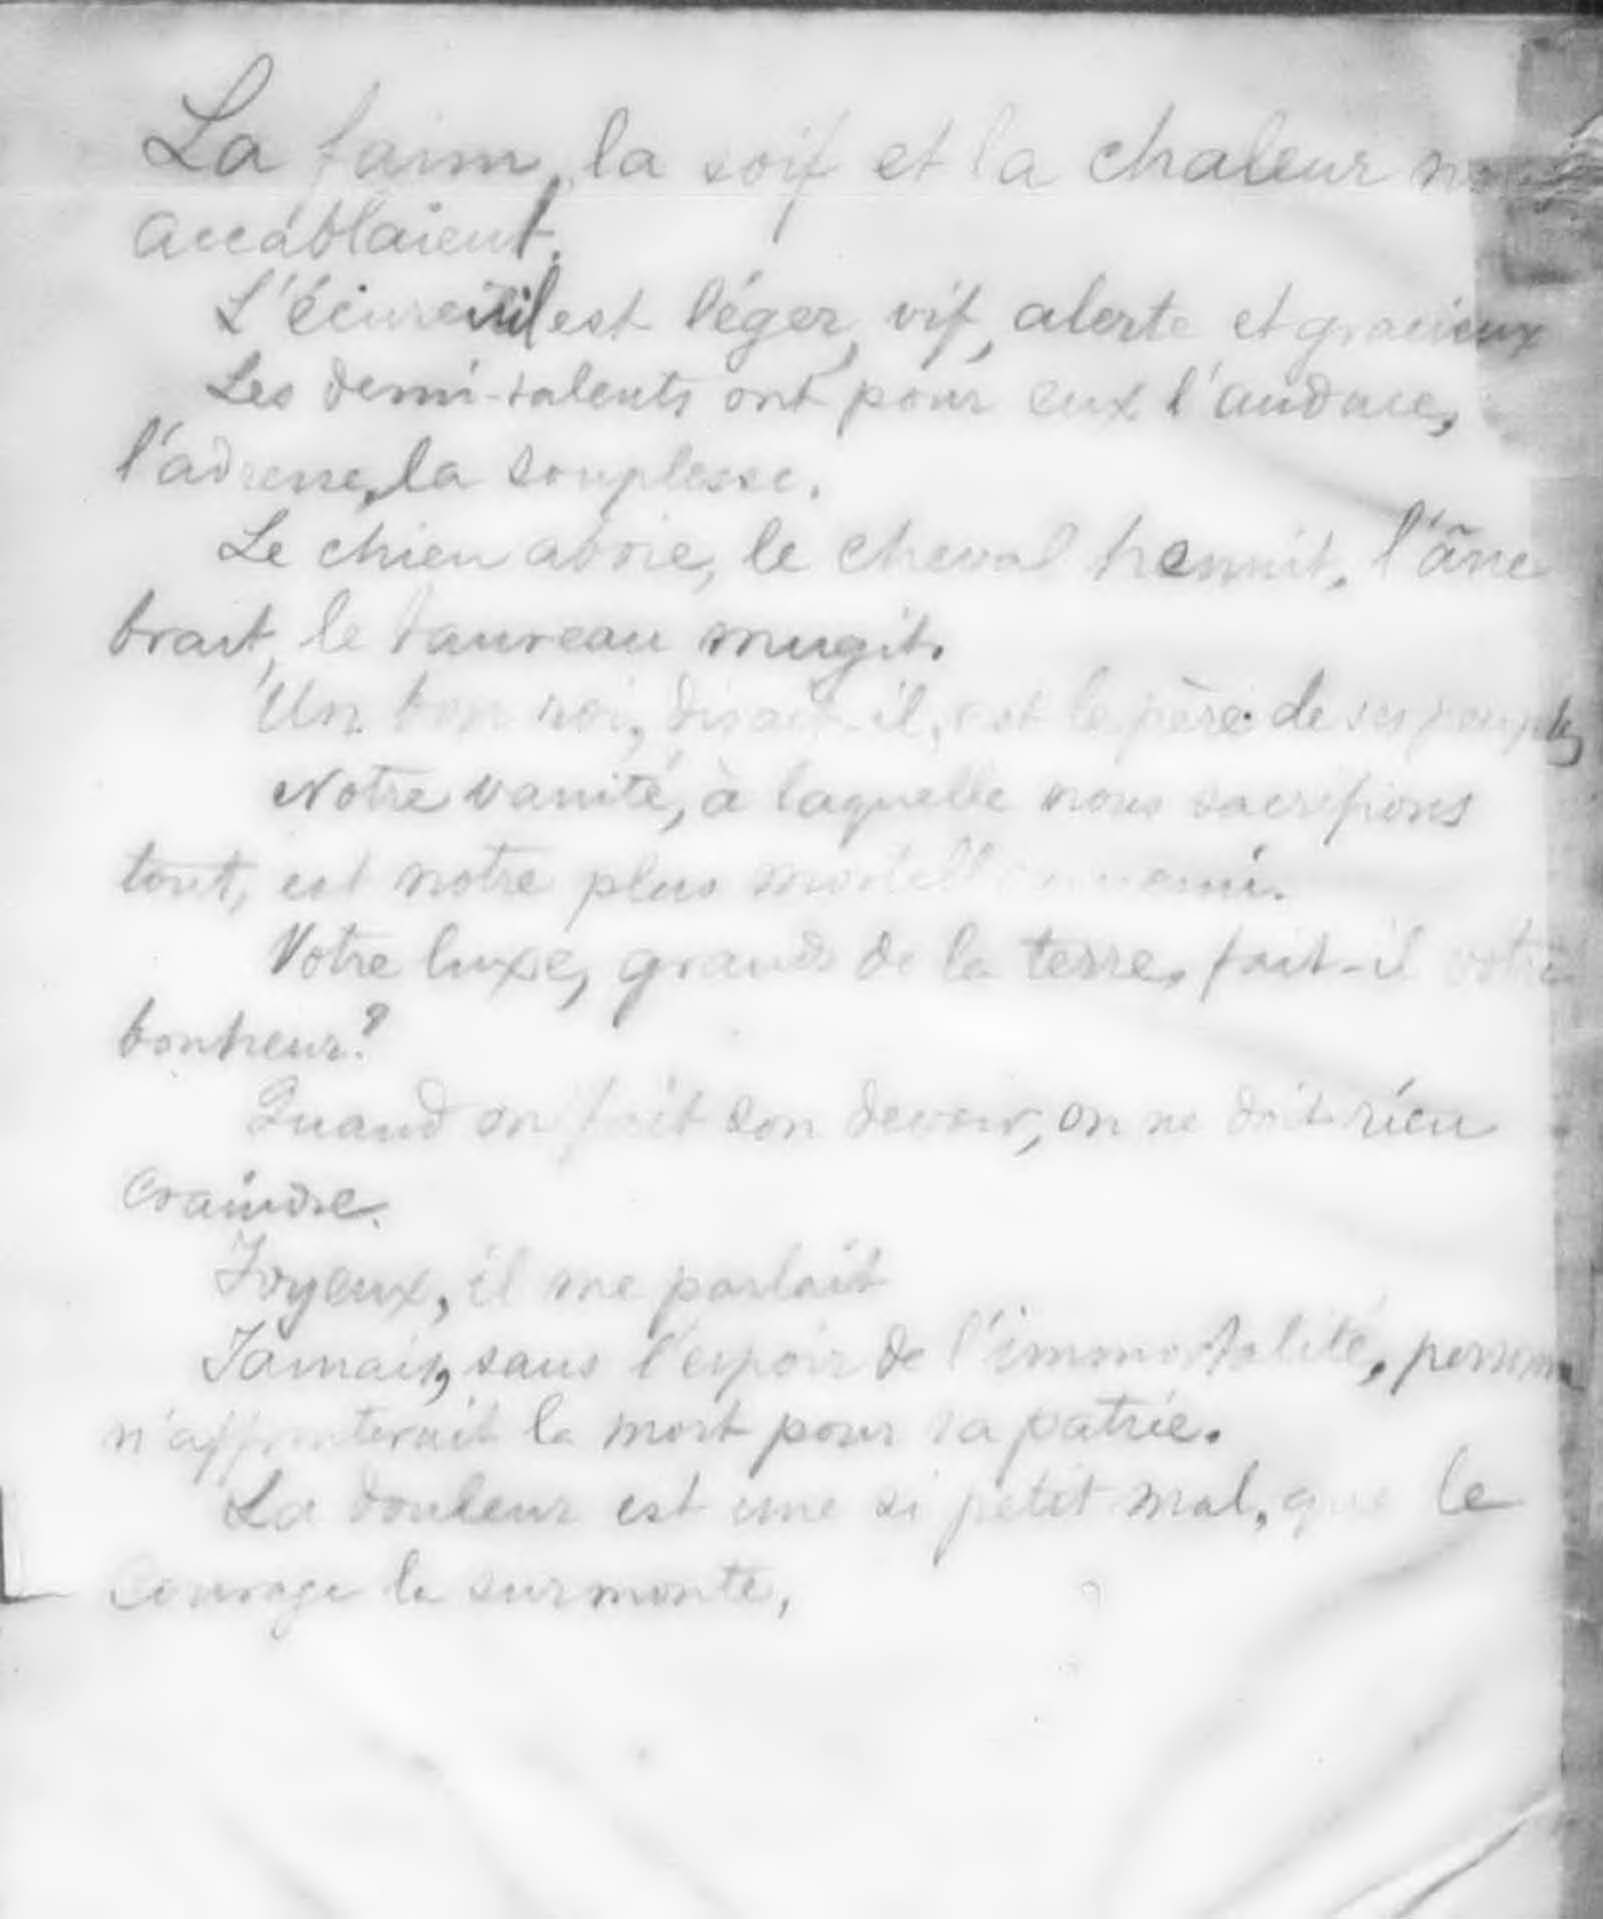 La faim, la soif et la chaleur
accablaient.
L'écureuil est léger, vif, alerte et gracieux
Les demi-talents ont pour eux l'audace,
l'adresse, la souplesse.
Le chien aboie, le cheval hennit, l'âne
brait, le taureau mugit.
Un bon roi, disait-il, est le père de ses peuples
Notre vanité, à laquelle nous sacrifions
tout, est notre plus mortel ennemi.
Votre luxe, grands de la terre, fait-il votre
bonheur?
Quand on fait son devoir, on ne doit rien
craindre.
Joyeux, il me parlait
Jamais, sans l'espoir de l'immortalité, personne
n'affronterait la mort pour sa patrie.
La douleur est une si petit mal, que le
courage la surmonte,